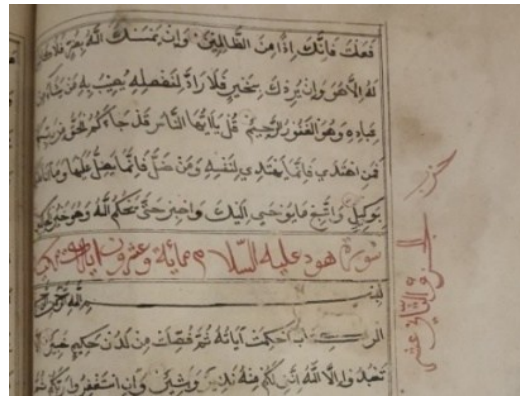 فعلت فانك اذا من الظالمين وان يمسسك الله بضر فلا كاشف
له الا هو وان يردك بخير فلا راد لفضله يصيب به من يشاء من
عباده وهو الغفور الرحيم قل يا ايها الناس قد جاءكم الحق من ربكم
فمن اهتدى فانما يهتدي لنفسه ومن ضل فانما يضل عليها وما انا عليكم
بوكيل واتبع ما يوحى اليك واصبر حتى يحكم الله وهو خير
سورة هود عليه السلام مائة وعشرون اية
بسم الله الرحمن
الر كتاب احكمت اياته ثم فصلت من لدن حكيم خبير
تعبدوا الا الله انني لكم منه نذير وبشير وان استغفروا ربكم ثم
حزب
الجزء الثاني عشر